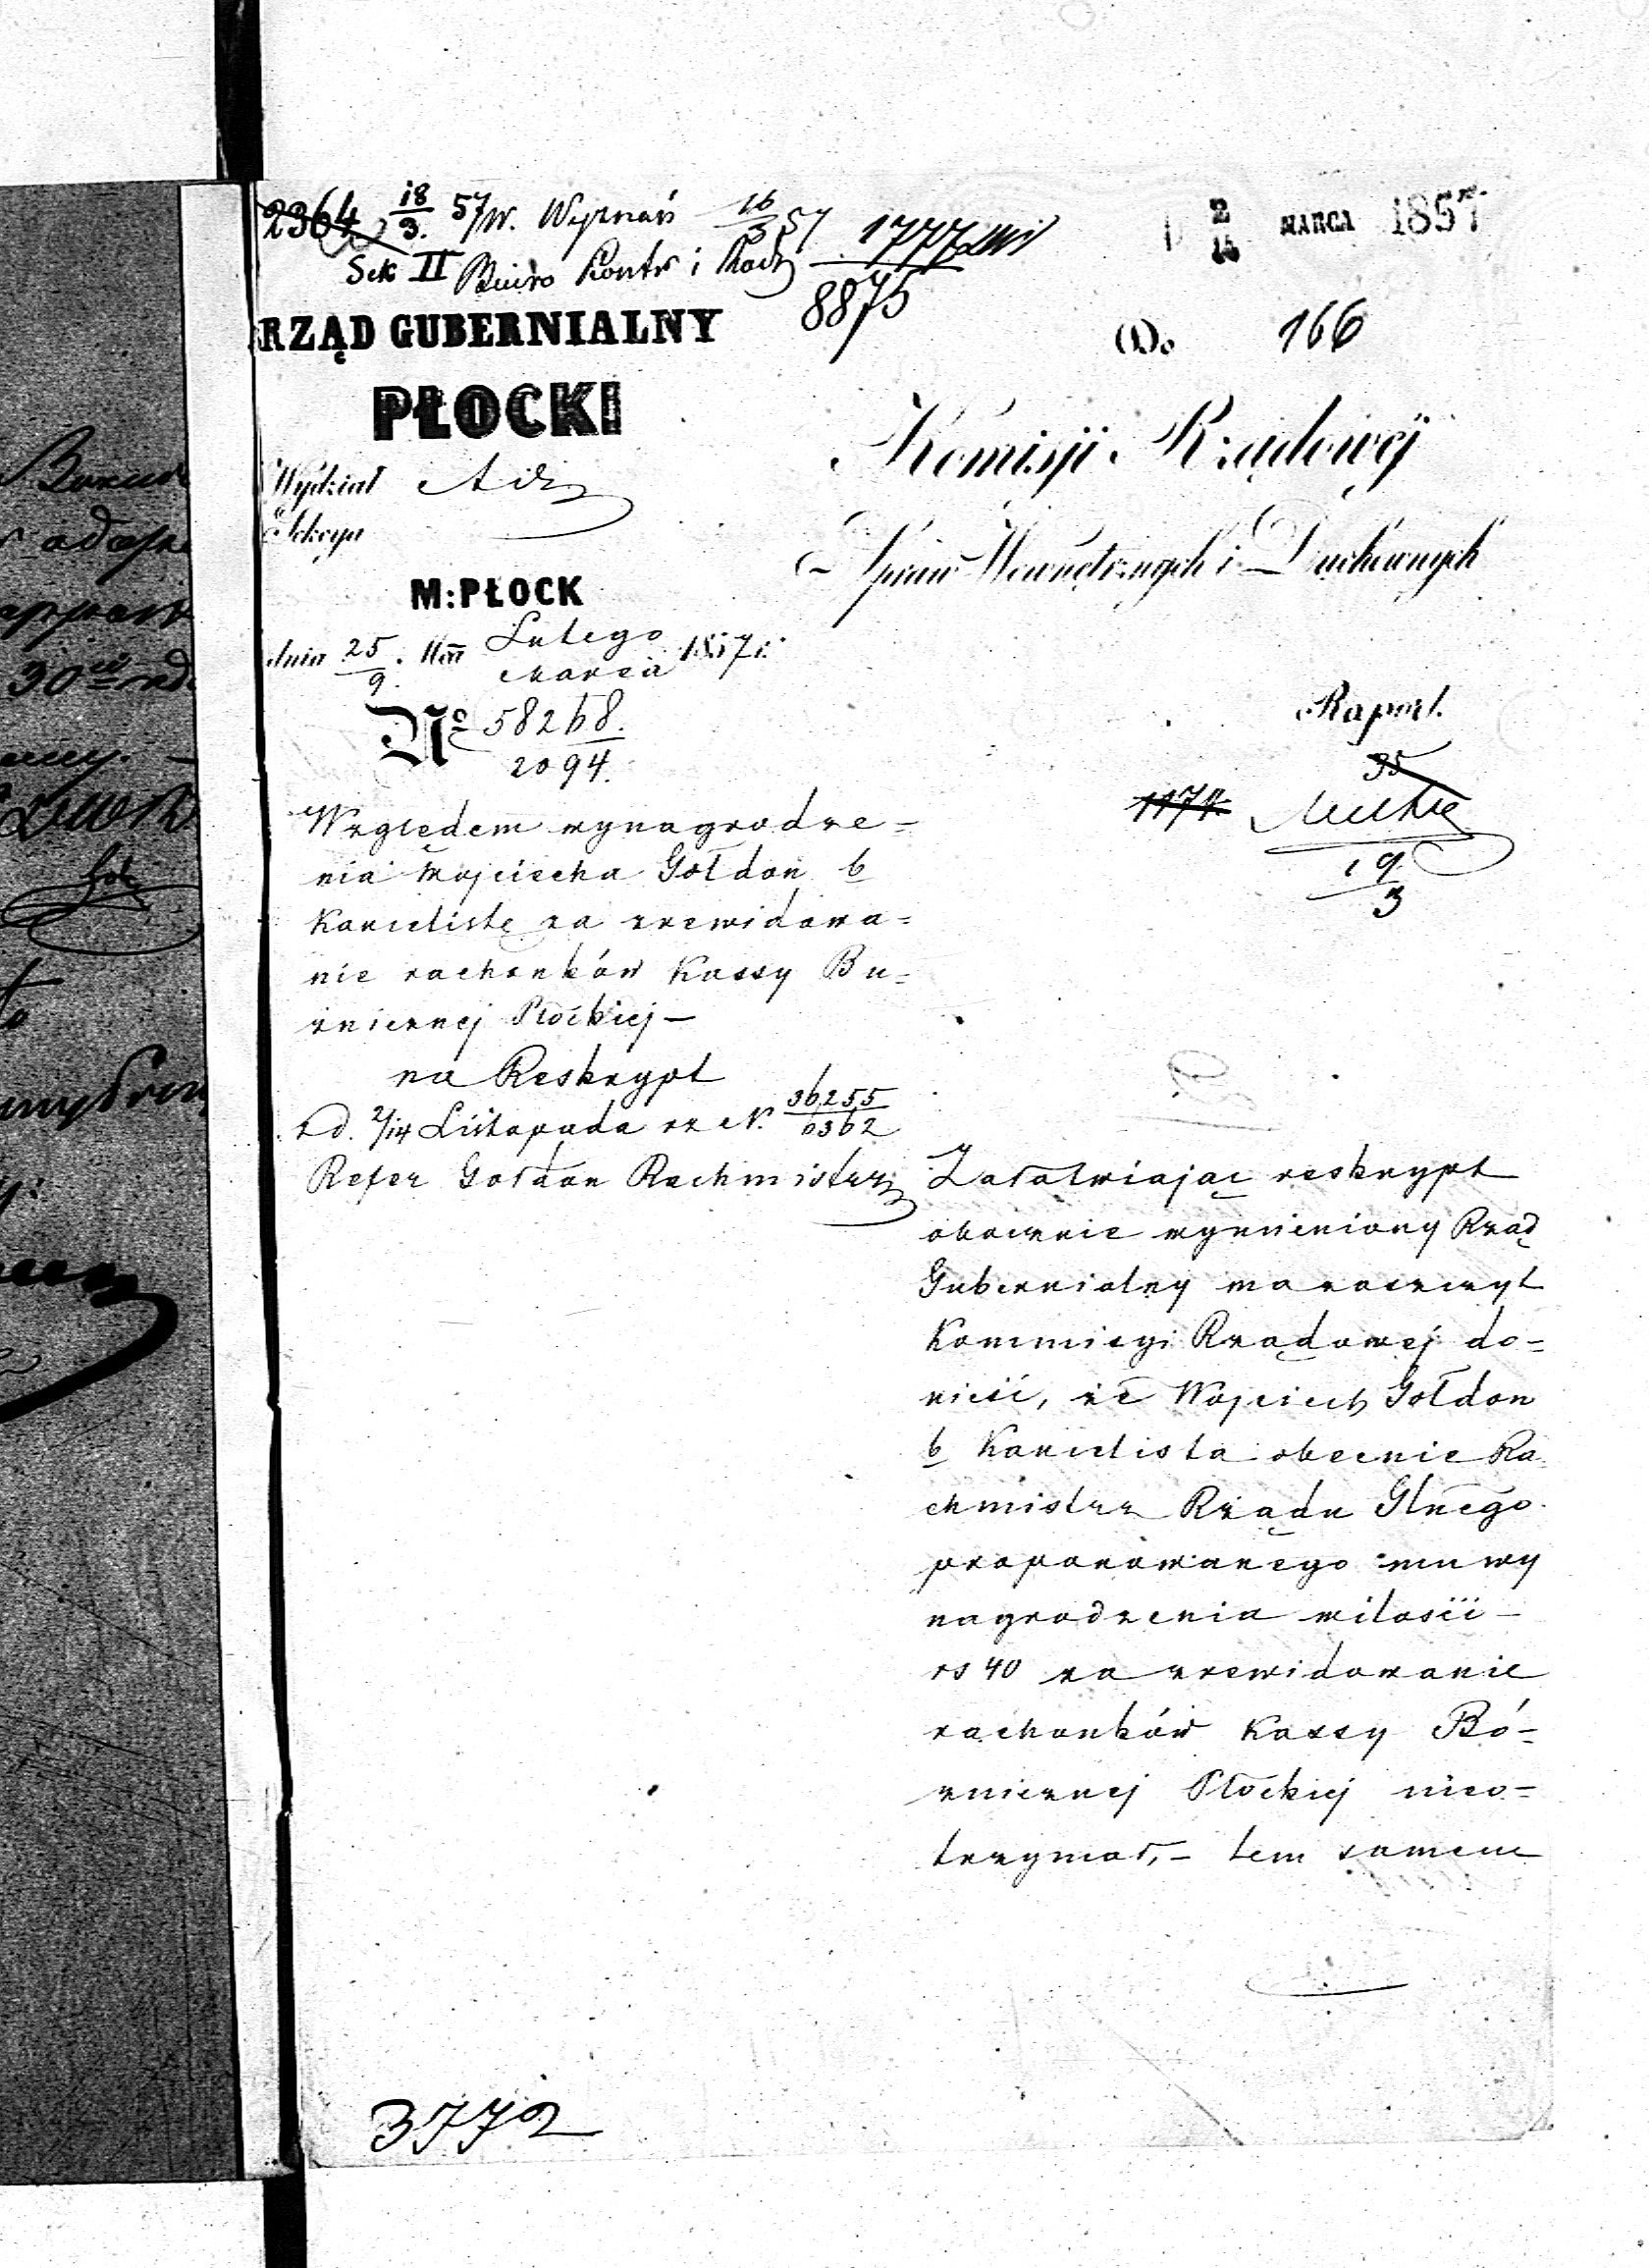 2364 18/3. 57/W. Wyznań 16/3 57
Sek II Biuro Kontr i Rach
1777
8875
2/14 MARCA 1857
RZĄD GUBERNIALNY
PŁOCKI
Wydział Adm
Sekcya
M: PŁOCK
dnia 25/9. Lutego/Marca 1857 r.
№ 58268./2094.
Względem wynagrodze=
nia Wojciecha Gołdon b
Kancelistę za zrewidowa=
nie rachonków Kassy Bu=
żnicznej Płockiej —
na Reskrypt
z d. 2/14 Listopada rz N. 36255/6362
Refer Gołdon Rachmistrz
Do 166
Komisji Rządowéj
Spraw Wewnętrznych i Duchownych
Raport.
35
1174
19
3
Załatwiając reskrypt
obocznie wymieniony Rząd
Gubernialny ma zaszczyt
Kommisyi Rządowej do=
nieść, że Wojciech Gołdon
b Kancelista obecnie Ra
chmistrz Rządu Glnego
proponowanego mu wy
nagrodzenia w ilości —
rs 40 za zrewidowanie
rachonków Kassy Bó=
żnicznej Płockiej nieo=
trzymał, — tem samem
3772
Borud
30